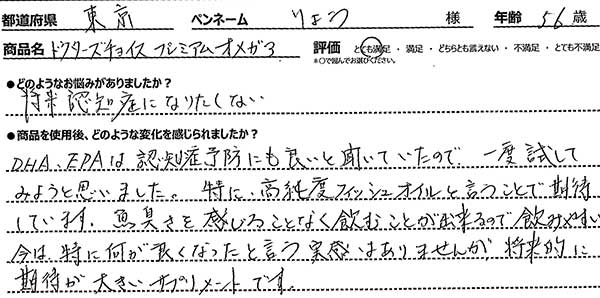 都道府県 東京 ペンネーム りょう 様 年齢 56 歳
商品名 ドクターズチョイス プレミアムオメガ3 評価 とても満足 ・ 満足 ・ どちらとも言えない ・ 不満足 ・ とても不満足
*○で囲んでお選びください。
●どのようなお悩みがありましたか?
将来認知症になりたくない
●商品を使用後、どのような変化を感じられましたか?
DHA、EPAは認知症予防にも良いと聞いていたので、一度試して
みようと思いました。特に、高純度フィッシュオイルと言うことで期待
しています。魚臭さを感じることなく飲むことが出来るので飲みやすい
今は、特に何が良くなったと言う実感はありませんが将来的に
期待が大きいサプリメントです。